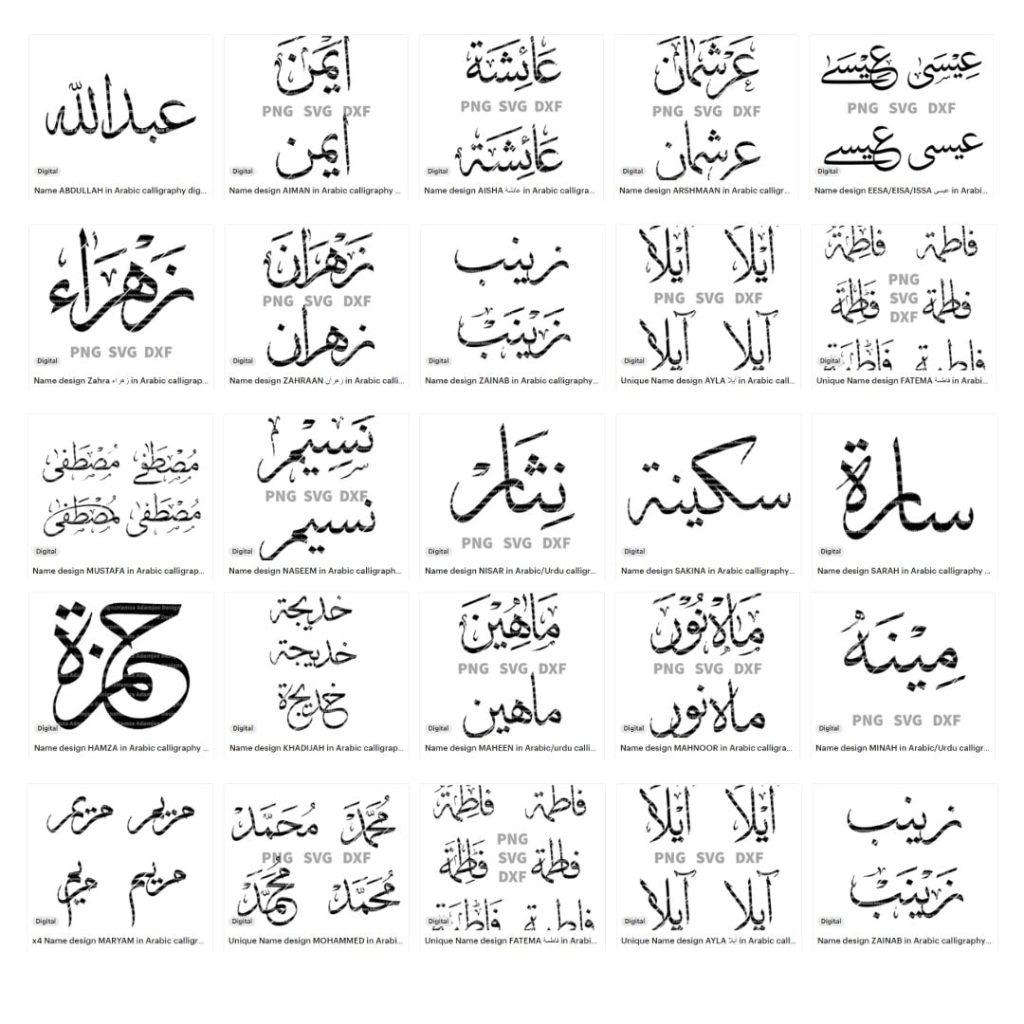 عبدالله
Digital
Name ABDULLAH in Arabic calligraphy dig...
أَيْمَنْ
PNG SVG DXF
أيمن
Digital
Name design AIMAN in Arabic calligraphy ...
عَائِشَة
PNG SVG DXF
عَائِشَة
Digital
Name design AISHA عائشة in Arabic calligra...
عَرْشْمَان
PNG SVG DXF
عرشمان
Digital
Name design ARSHMAAN in Arabic calligr...
عِيْسَى عِيْسَے
PNG SVG DXF
عيسى عيسے
Digital
Name design EESA/EISA/ISSA عيسى in Arabi...
زَهْرَاء
PNG SVG DXF
Digital
Name design Zahra زهراء in Arabic calligrap...
زَهْرَان
PNG SVG DXF
زهران
Digital
Name design ZAHRAAN زهران in Arabic calli...
زينب
زَيْنَبْ
Digital
Name design ZAINAB in Arabic calligraphy...
آيْلَا آيْلَا
PNG SVG DXF
آيلا آيلا
Digital
Unique Name design AYLA آيلا in Arabic call...
فاطمة فَاطِمَة
PNG
SVG
DXF
فَاطِمَة فَاطِمَة
Digital
فاطمة فَاطِمَة
Unique Name design FATEMA فاطمة in Arabi...
مُصْطَفى مُصْطَفَى
مُصْطَفَى مُصْطَفَى
Digital
Name design MUSTAFA in Arabic calligrap...
نَسِيْم
PNG SVG DXF
نسيم
Digital
Name design NASEEM in Arabic calligraph...
نِثَار
PNG SVG DXF
Digital
Name design NISAR in Arabic/Urdu calligr...
سكينة
Digital
Name design SAKINA in Arabic calligraphy...
سارة
Digital
Name design SARAH in Arabic calligraphy ...
حمزة
Digital
Name design HAMZA in Arabic calligraphy ...
خديجة
خديجة
خديجة
Digital
Name design KHADIJAH in Arabic calligrap...
مَاهِيْن
PNG SVG DXF
ماهين
Digital
Name design MAHEEN in Arabic/urdu calli...
مَاہْ نُوْر
PNG SVG DXF
ماہ نور
Digital
Name design MAHNOOR in Arabic calligra...
مِيْنَهُ
PNG SVG DXF
Digital
Name design MINAH in Arabic/Urdu calligr...
مريم مريم
مريم مريم
Digital
x4 Name design MARYAM in Arabic calligr...
مُحَمَّد مُحَمَّد
PNG SVG DXF
مُحَمَّد مُحَمَّد
Digital
Unique Name design MOHAMMED in Arabi...
فاطمة فَاطِمَة
PNG
SVG
DXF
فَاطِمَة فَاطِمَة
Digital
فاطمة فَاطِمَة
Unique Name design FATEMA فاطمة in Arabi...
آيْلَا آيْلَا
PNG SVG DXF
آيلا آيلا
Digital
Unique Name design AYLA آيلا in Arabic call...
زينب
زَيْنَبْ
Digital
Name design ZAINAB in Arabic calligraphy...